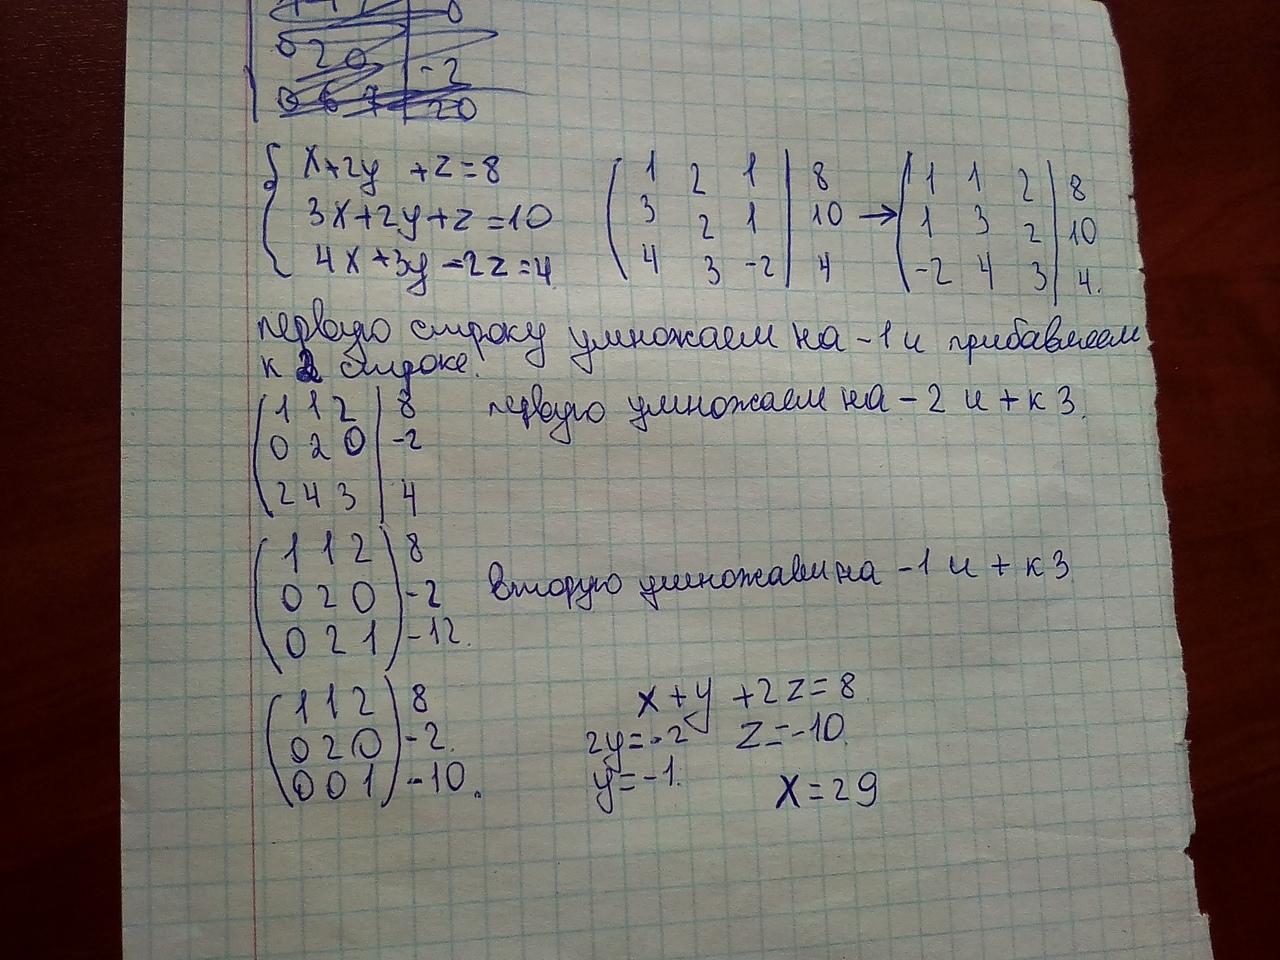 0 2 0 | -2
0 6 7 | 20
{ x+2y +z=8
3x+2y+z=10
4x+3y-2z=4
( 1 2 1 | 8
3 2 1 | 10 →
4 3 -2 | 4
( 1 1 2 | 8
1 3 2 | 10
-2 4 3 | 4.
первую строку умножаем на -1 и прибавляем
к 2 строке.
( 1 1 2 | 8
0 2 0 | -2
2 4 3 | 4
первую умножаем на -2 и + к 3.
( 1 1 2 ) 8
0 2 0 ) -2
0 2 1 ) -12.
вторую умножаем на -1 и + к 3
( 1 1 2 ) 8
0 2 0 ) -2.
0 0 1 ) -10.
x+y +2z=8.
2y=-2 z=-10.
y=-1.
x=29